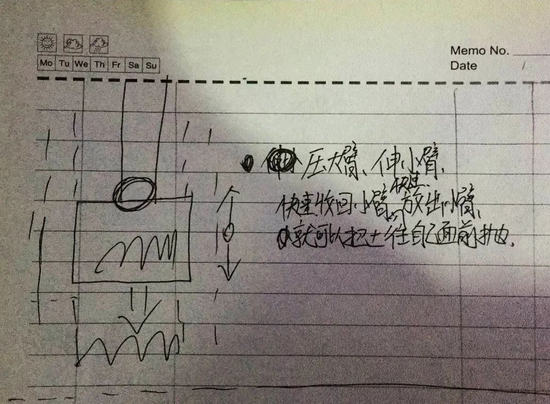 Memo No.
Date
Mo Tu We Th Fr Sa Su
压大臂、伸小臂、
快速收回小臂,快速放出小臂、
就可以把土往自己面前抛.